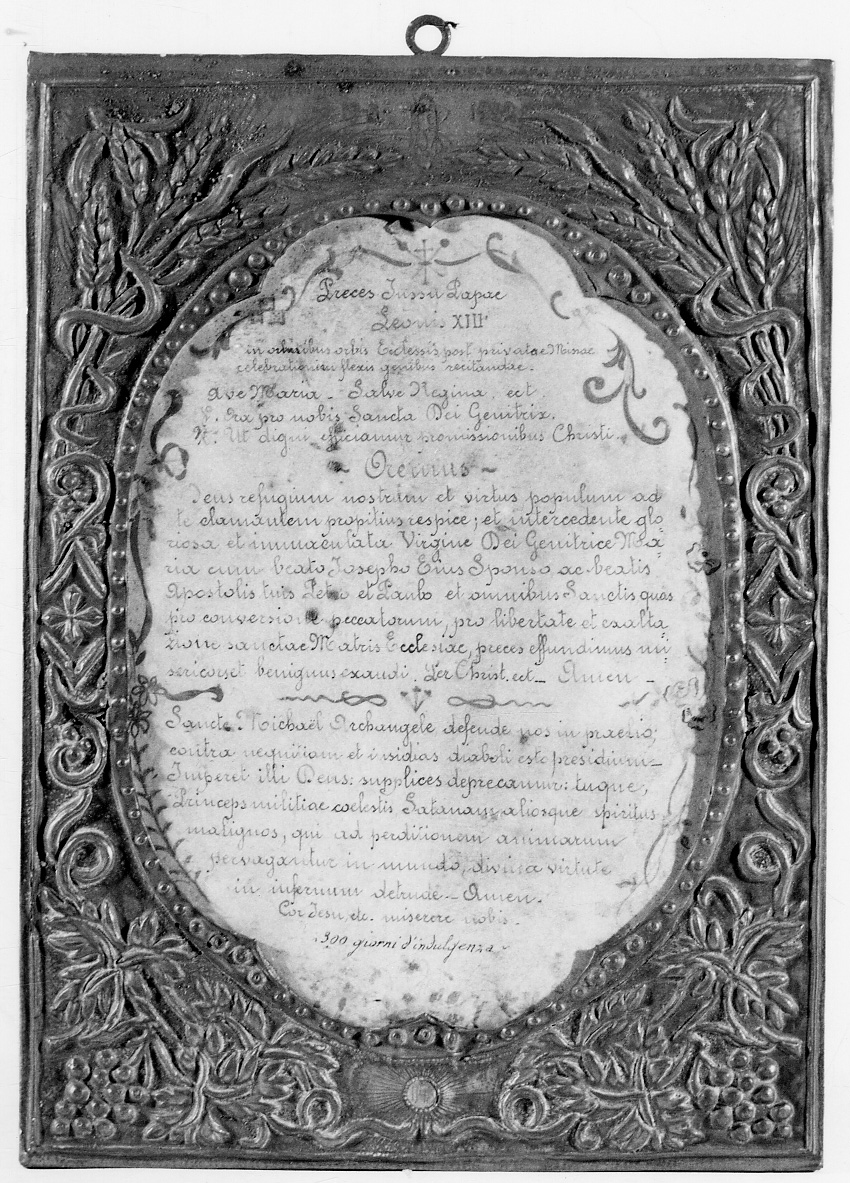 Preces Jussu Papae
Leonis XIII
in omnibus orbis Ecclesiis post privatae Missae
celebrationem flexis genibus recitandae.
Ave Maria - Salve Regina, ect
V. Ora pro nobis Sancta Dei Genitrix.
R. Ut digni efficiamur promissionibus Christi.
~ Oremus ~
Deus refugium nostrum et virtus populum ad
te clamantem propitius respice; et intercedente glo-
riosa et immaculata Virgine Dei Genitrice Ma-
ria cum beato Josepho Eius Sponso ac beatis
Apostolis tuis Petro et Paulo et omnibus Sanctis quas
pro conversione peccatorum, pro libertate et exalta-
zione sanctae Matris Ecclesiae, preces effundimus mi-
sericors et benignus exaudi. Per Christ. ect_ Amen _
Sancte Michaël Archangele defende nos in praelio;
contra nequitiam et insidias diaboli esto presidium_
Imperet illi Deus: supplices deprecamur: tuque,
Princeps militiae coelestis Satanam aliosque spiritus
malignos, qui ad perditionem animarum
pervagantur in mundo, divina virtute
in infernum detrude_ Amen.
Cor Jesu, etc. miserere nobis.
300 giorni d'indulgenza